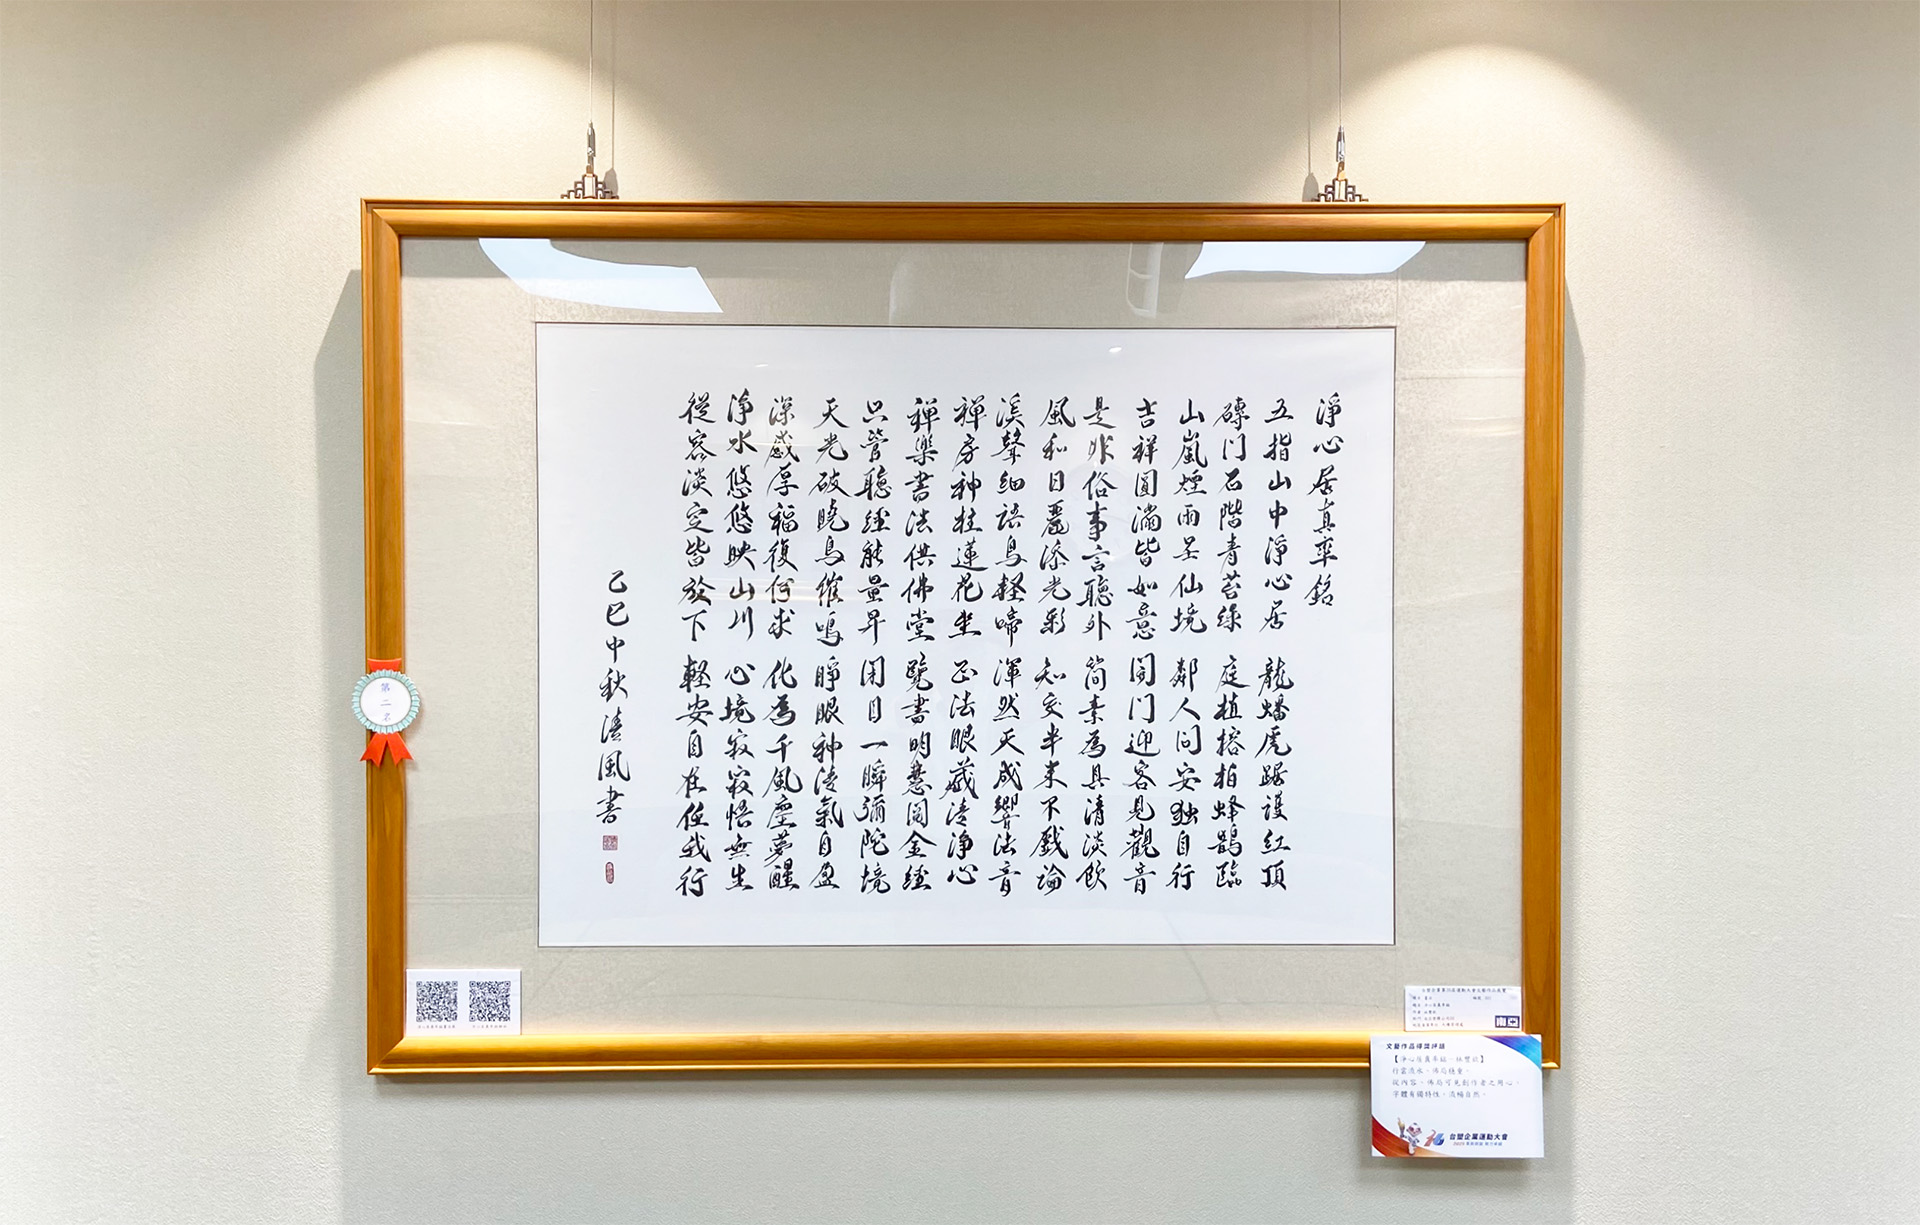 淨心居真率銘
五指山中淨心居 龍蟠虎踞護紅頂
磚門石階青苔綠 庭植榕柏蜂鵲臨
山嵐煙雨呈仙境 鄰人問安獨自行
吉祥圓滿皆如意 開門迎客見觀音
是非俗事言聽外 簡素為具清淡飲
風和日麗添光彩 知交半來不戲論
溪聲細語鳥輕啼 渾然天成響法音
禪房神柱蓮花坐 正法眼藏清淨心
禪樂書法供佛堂 覽書明慧閱金經
只管聽經能量昇 閉目一瞬彌陀境
天光破曉鳥催鳴 睜眼神清氣自盈
深感厚福復何求 化為千風塵夢醒
淨水悠悠映山川 心境寂寂悟無生
從容淡定皆放下 輕安自在任我行
乙巳中秋 清風書
第二名
南亞
文藝作品得獎評語
行雲流水,佈局穩重。
從內容、佈局可見創作者之用心。
字體有獨特性,流暢自然。
台塑企業運動大會